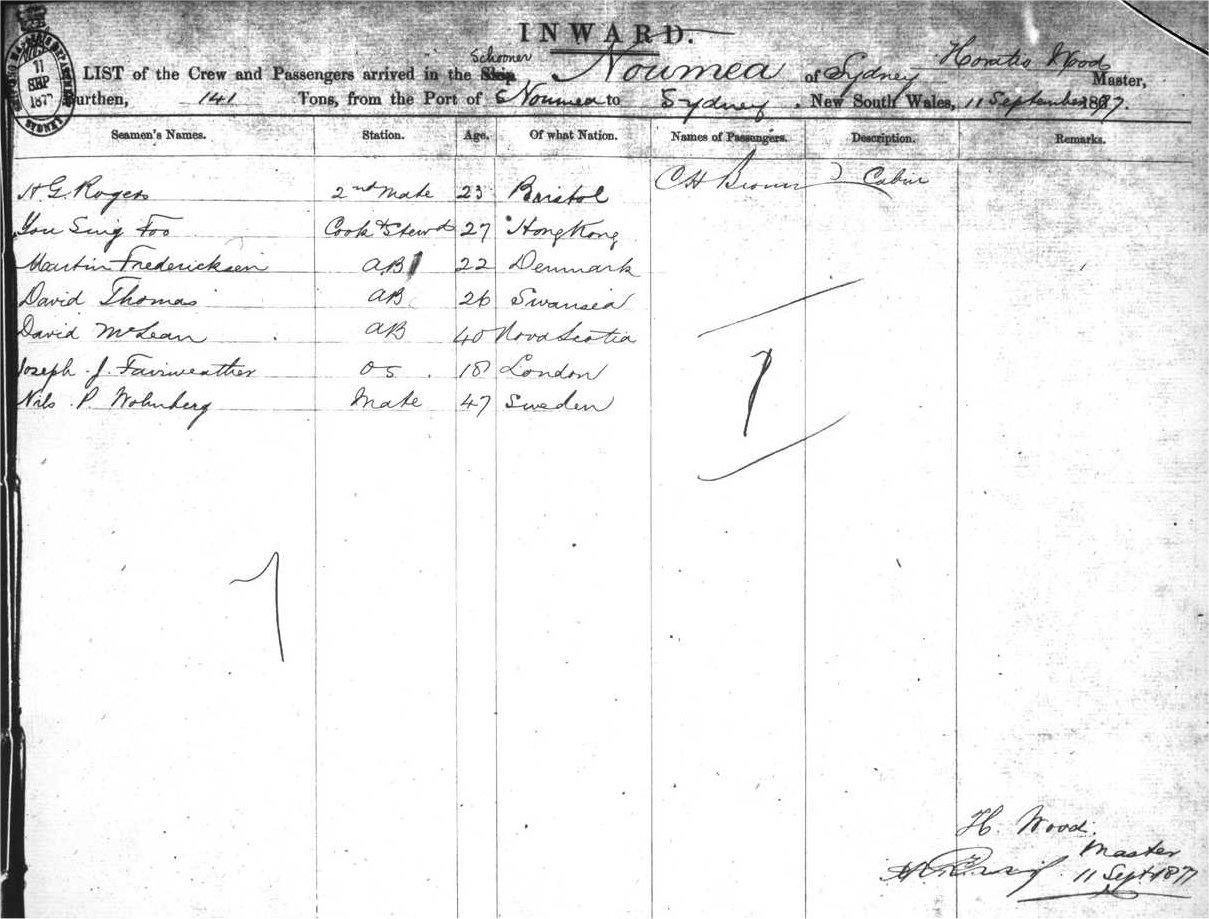 INWARD.
Schooner
LIST of the Crew and Passengers arrived in the Ship Noumea of Sydney Horatio Wood Master,
Burthen, 141 Tons, from the Port of Noumea to Sydney, New South Wales, 11 September 1877.
Seamen's Names. Station. Age. Of what Nation. Names of Passengers. Description. Remarks.
H G Rogers 2nd Mate 23 Bristol C H Brown Cabin
You Sing Foo Cook & Stewd 27 Hong Kong
Martin Fredericksen AB 22 Denmark
David Thomas AB 26 Swansea
David McLean AB 40 Nova Scotia
Joseph J. Fairweather OS. 18 London
Nils P. Mate 47 Sweden
1
7
H. Wood.
Master
11 Sept 1877